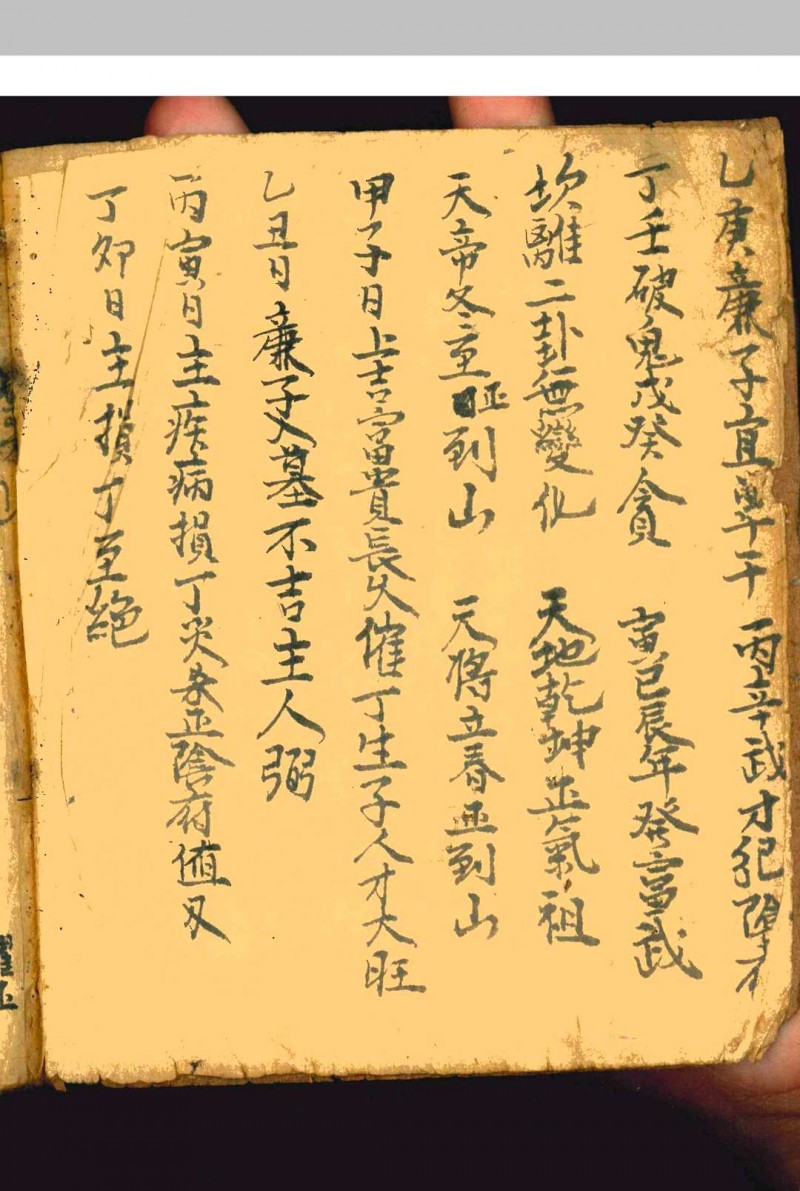 乙庚廉子宜單干 丙辛武才犯隂才
丁壬破鬼戊癸貪 寅巳辰年發富武
坎離二卦無變化 天地乾坤正氣祖
天帝冬至旺到山 元將立春正到山
甲子日上吉富貴長久催丁生子人才大旺
乙丑日廉子入墓不吉主人弱
丙寅日主疾病損丁災 正隂府值又
丁卯日主損丁至絕